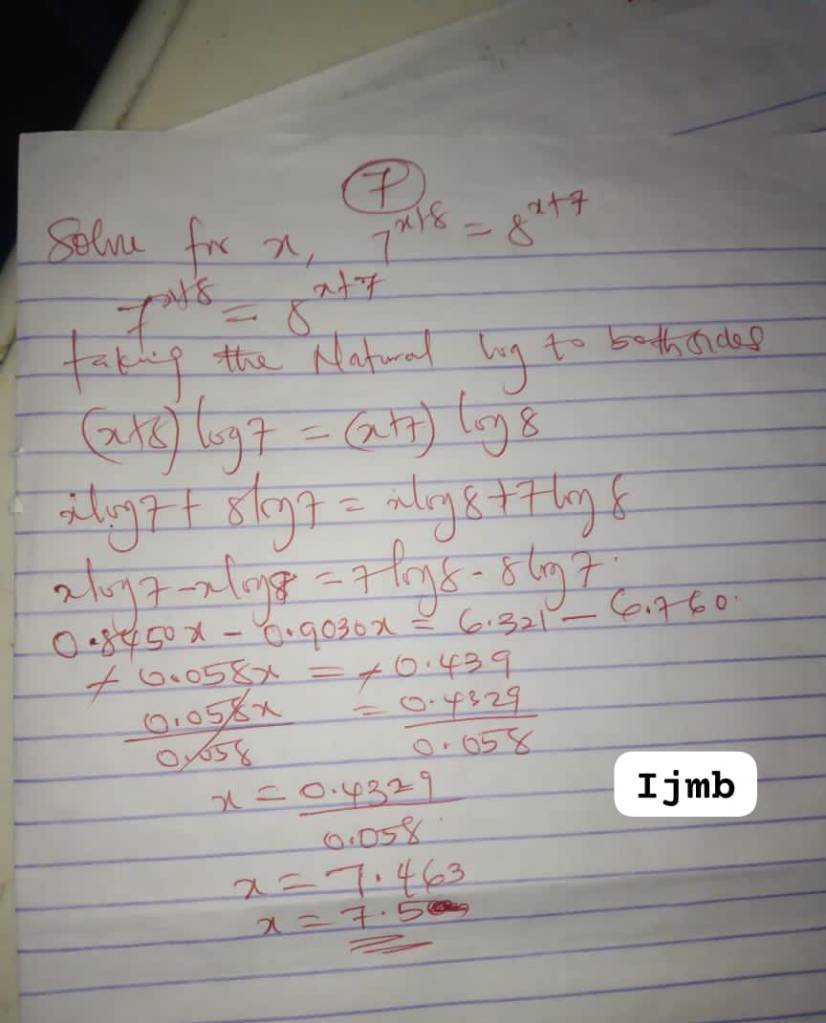 7
Solve for x, 7^x+8 = 8^x+7
7^x+8 = 8^x+7
taking the Natural log to both sides
(x+8) log 7 = (x+7) log 8
xlog7 + 8log7 = xlog8 + 7log8
xlog7 - xlog8 = 7log8 - 8log7.
0.8450x - 0.9030x = 6.321 - 6.760.
- 0.058x = - 0.439
0.058x = 0.4329
0.058 0.058
x = 0.4329
0.058
x = 7.463
x = 7.5
Ijmb